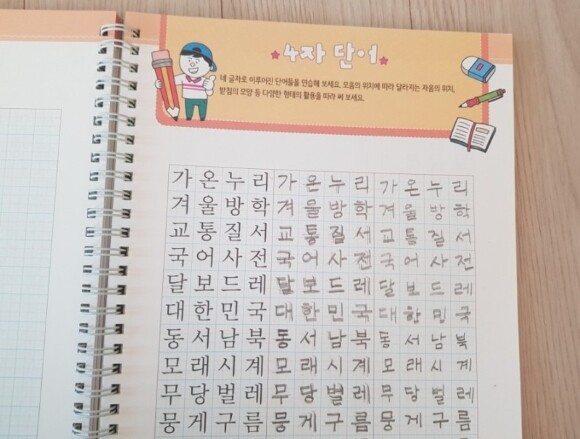 4자 단어
네 글자로 이루어진 단어들을 연습해 보세요. 모음의 위치에 따라 달라지는 자음의 위치,
받침의 모양 등 다양한 형태의 활용을 따라 써 보세요.
가온누리 가온누리 가온누리
겨울방학 겨울방학 겨울방학
교통질서 교통질서 교통질서
국어사전 국어사전 국어사전
달보드레 달보드레 달보드레
대한민국 대한민국 대한민국
동서남북 동서남북 동서남북
모래시계 모래시계 모래시계
무당벌레 무당벌레 무당벌레
뭉게구름 뭉게구름 뭉게구름